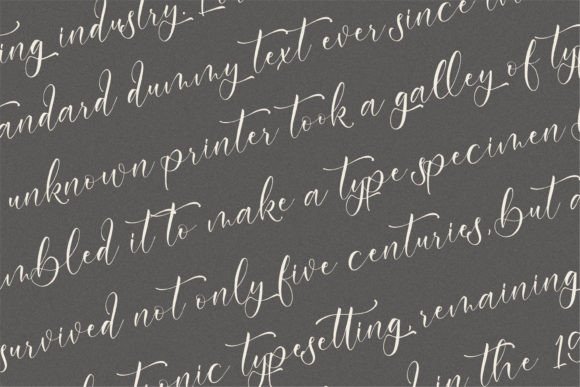 ing industry. Lor
andard dummy text ever since
unknown printer took a galley of ty
mbled it to make a type specimen
survived not only five centuries, but a
tronic typesetting, remaining
in the 19